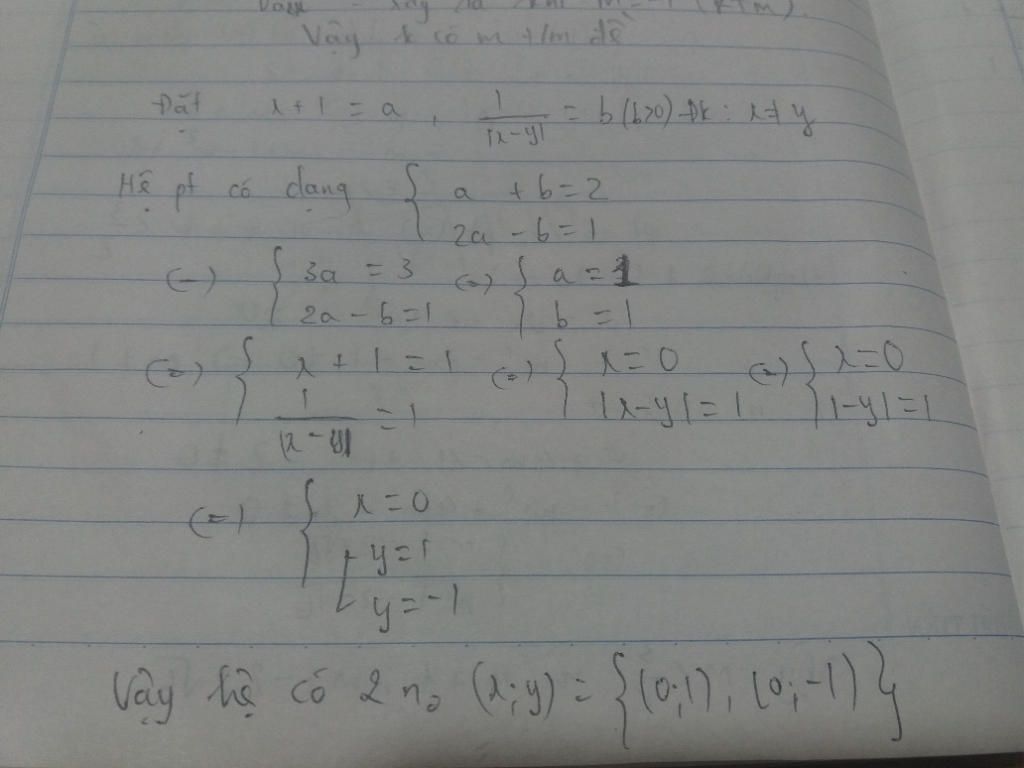 Vậy k có m t/m đề
Đặt x + 1 = a , 1/|x-y| = b (b>0) ĐK : x ≠ y
Hệ pt có dạng { a + b = 2
2a - b = 1
(=) { 3a = 3 (=) { a = 1
2a - b = 1 b = 1
(=) { x + 1 = 1 (=) { x = 0 (=) { x = 0
1/|x-y| = 1 |x-y| = 1 |-y| = 1
(=) { x = 0
[ y = 1
y = -1
Vậy hệ có 2 no (x;y) = {(0;1), (0;-1)}